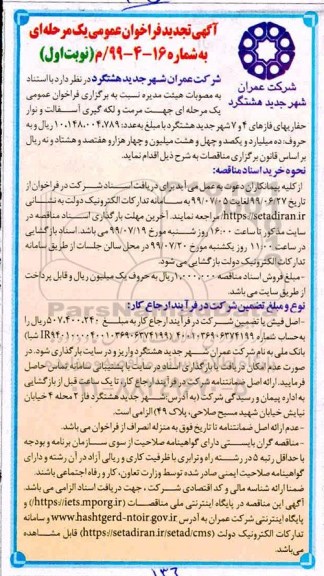 آگهی تجدید فراخوان عمومی یک مرحله ای
به شماره ۱۶-۴-۹۹/م (نوبت اول)
شرکت عمران
شهر جدید هشتگرد
شرکت عمران شهر جدید هشتگرد در نظر دارد با استناد
به مصوبات هیئت مدیره نسبت به برگزاری فراخوان عمومی
یک مرحله ای جهت مرمت و لکه گیری آسفالت و نوار
حفاریهای فازهای ۴ و ۷ شهر جدید هشتگرد با مبلغ به عدد: ۱۰،۱۴۸،۰۰۴،۷۸۹ ریال و به
حروف: ده میلیارد و یکصد و چهل و هشت میلیون و چهار هزار و هفتصد و هشتاد و نه ریال
بر اساس قانون برگزاری مناقصات به شرح ذیل اقدام نماید.
نحوه خرید اسناد مناقصه:
- از کلیه پیمانکاران دعوت به عمل می آید برای دریافت اسناد شرکت در فراخوان از
تاریخ ۹۹/۰۶/۲۷ لغایت ۹۹/۰۷/۰۵ به سامانه تدارکات الکترونیک دولت به نشانی
https://setadiran.ir مراجعه نمایند. آخرین مهلت بارگذاری اسناد مناقصه در
سایت مذکور تا ساعت ۱۶:۰۰ روز شنبه مورخ ۹۹/۰۷/۱۹ می باشد. اسناد بازگشایی
در ساعت ۱۱:۰۰ روز یکشنبه مورخ ۹۹/۰۷/۲۰ در محل سالن جلسات از طریق سامانه
تدارکات الکترونیک دولت بازگشایی می شود.
- مبلغ فروش اسناد مناقصه ۱،۰۰۰،۰۰۰ ریال به حروف یک میلیون ریال و قابل پرداخت
از طریق سایت می باشد.
نوع و مبلغ تضمین شرکت در فرآیند ارجاع کار:
- اصل فیش یا تضمین شرکت در فرآیند ارجاع کار به مبلغ ۵۰۷،۴۰۰،۲۴۰ ریال
به حساب شماره
بانک ملی به نام شرکت عمران شهر جدید هشتگرد واریز و در سایت بارگذاری شود. در
صورت عدم امکان دریافت یا بارگذاری اسناد در سایت با پشتیبانی سامانه تماس حاصل
فرمایید. ارائه اصل ضمانتنامه شرکت در فرآیند ارجاع کار تا یک ساعت قبل از بازگشایی
به اداره پیمان و رسیدگی شرکت (به آدرس: شهر جدید هشتگرد فاز ۲ محله ۴ خیابان
نیایش خیابان شهید مسیح صلاحی، پلاک ۴۹) الزامی است.
- عدم ارائه اصل ضمانتنامه تا تاریخ فوق به منزله انصراف از فراخوان می باشد.
- مناقصه گران بایستی دارای گواهینامه صلاحیت از سوی سازمان برنامه و بودجه
با حداقل رتبه ۵ در رشته راه و ترابری با ظرفیت کاری و ریالی آزاد در آن رشته و دارای
گواهینامه صلاحیت ایمنی صادر شده توسط وزارت تعاون، کار و رفاه اجتماعی باشند.
ضمنا ارائه شناسه مالی و کد اقتصادی شرکت، جهت دریافت اسناد الزامی می باشد.
آگهی این مناقصه در پایگاه اینترنتی ملی مناقصات (https://iets.mporg.ir) و
پایگاه اینترنتی شرکت عمران به آدرس www.hashtgerd-ntoir.gov.ir و سامانه
تدارکات الکترونیک دولت (https://setadiran.ir/setad/cms) قابل مشاهده
می باشد.
۱۳۶